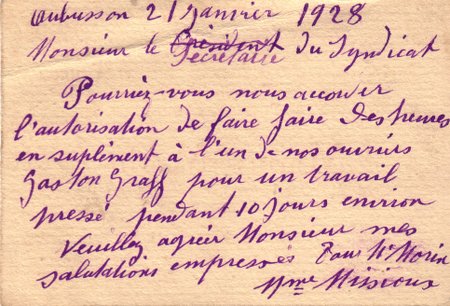 Aubusson 21 Janvier 1928
Monsieur le Président du Syndicat
Secrétaire
Pourriez-vous nous accorder
l'autorisation de faire faire des heures
en suplément à l'un de nos ouvriers
Gaston Graff pour un travail
pressé pendant 10 jours environ
Veuillez agréer Monsieur mes
salutations empressés Pour Mr Morin
Mme Missioux